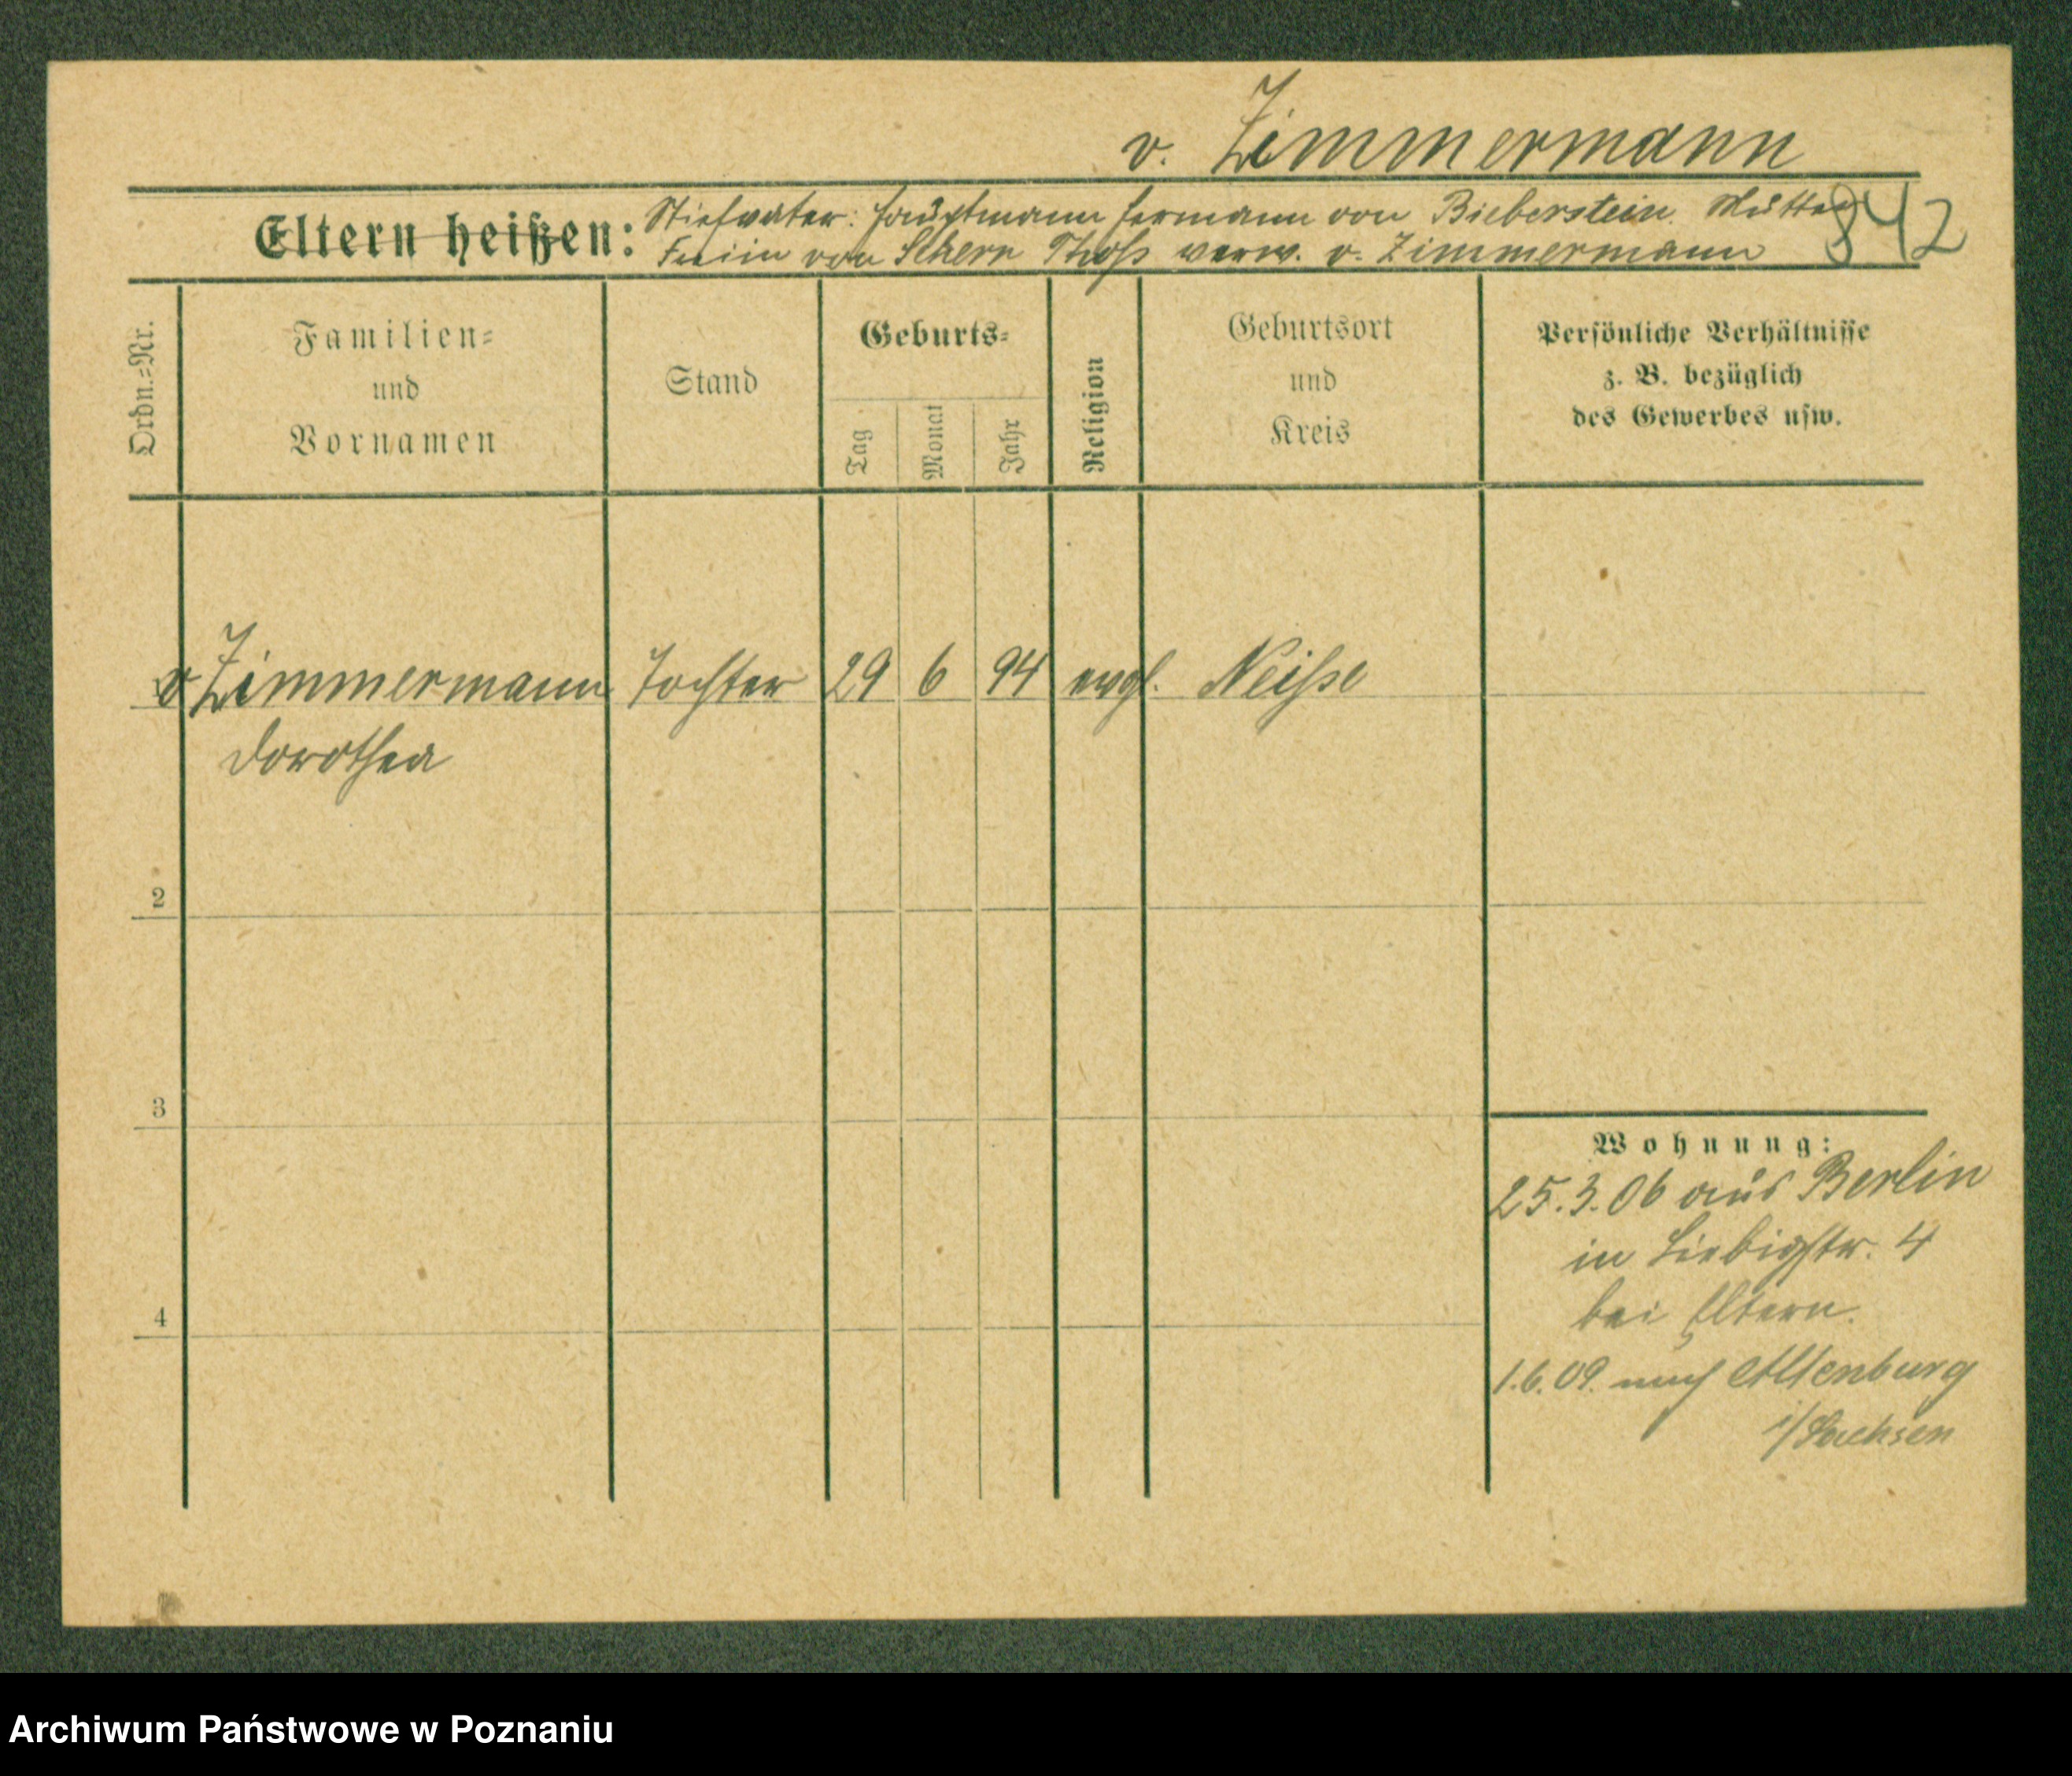 v. Zimmermann
Eltern heißen: Stiefvater: Hauptmann Hermann von Bieberstein. Mutter
Freiin von Scherr Thoß verw. v. Zimmermann
842
Ordn.=Nr.
Familien=
und
Vornamen
Stand
Geburts=
Tag
Monat
Jahr
Religion
Geburtsort
und
Kreis
Persönliche Verhältnisse
z. B. bezüglich
des Gewerbes usw.
v Zimmermann Tochter 29 6 94 evgl. Neisse
Dorothea
2
3
4
Wohnung:
25.3.06 aus Berlin
in Liebigstr. 4
bei Eltern.
1.6.09. nach Altenburg
i/Sachsen
Archiwum Państwowe w Poznaniu